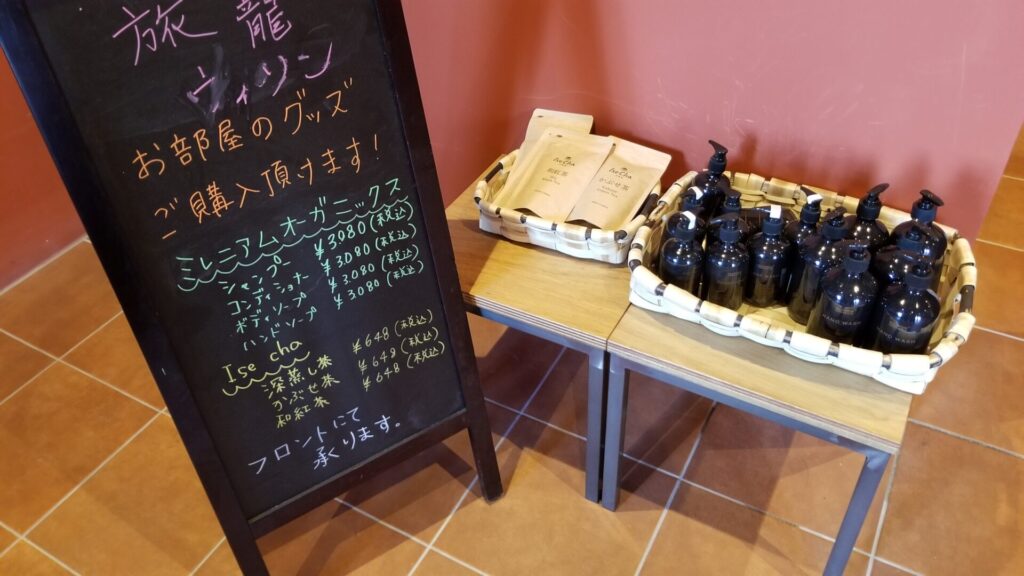 旅籠
ヴィソン
お部屋のグッズ
ご購入頂けます!
ミレニアムオーガニックス
シャンプー ¥3080(税込)
コンディショナー ¥3080(税込)
ボディソープ ¥3080(税込)
ハンドソープ ¥3080
Ise cha
深蒸し茶 ¥648(税込)
かぶせ茶 ¥648(税込)
和紅茶 ¥648(税込)
フロントにて
承ります。
Ise Cha
和紅茶
Ise Cha
かぶせ茶